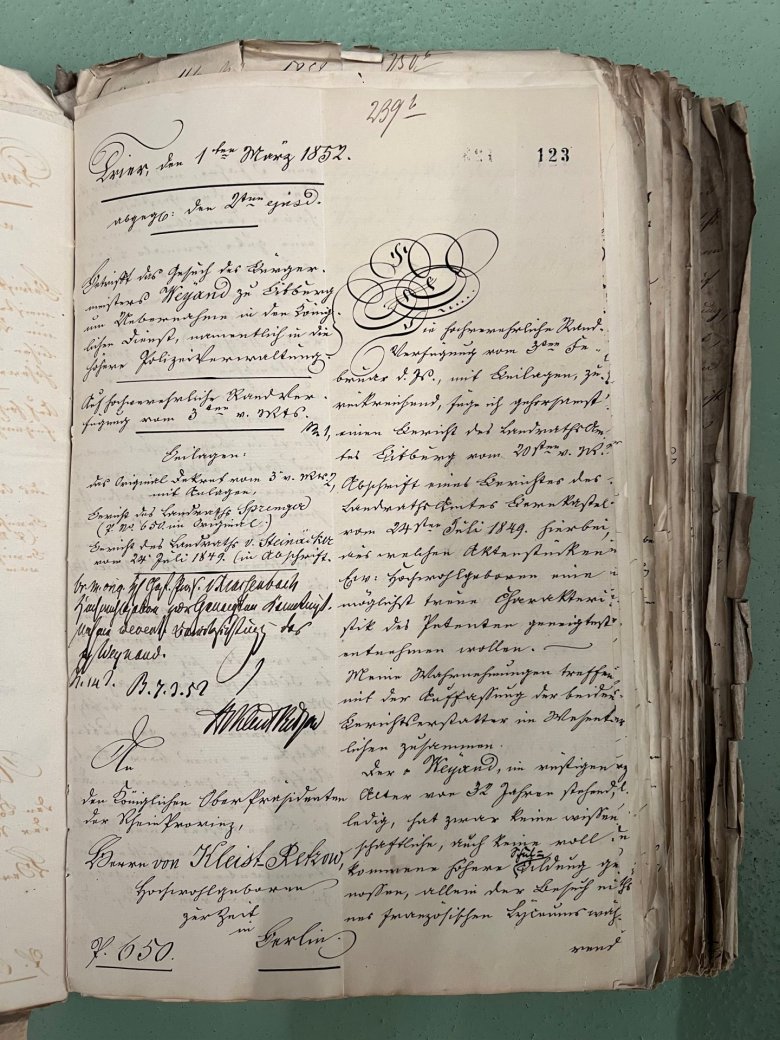 239b
123
Trier, den 1ten März 1852.
abgeg: den 2ten ejusd.
Betrifft das Gesuch des Bürger-
meisters Weyand zu Bitburg
um Uebernahme in den König-
lichen Dienst, namentlich in die
höhere Polizeiverwaltung.
Auf hochverehrliche Randver-
fügung vom 3ten v. Mts.
Beilagen:
das Original Dekret vom 3t v. Mts,
mit Anlagen,
Bericht des Landraths Sprenger
(P No 650. im Original.)
Bericht des Landraths v. Steinäcker
vom 24t Juli 1849. (in Abschrift.
Weyand.
B. 7.3.52
vKleist Retzow
An
den Königlichen Ober Präsidenten
der Rhein Provinz,
Herrn von Kleist-Retzow,
Hochwohlgeboren
zur Zeit
in
Berlin.
P. 650.
Die hochverehrliche Rand-
Verfügung vom 3ten Fe-
bruar d. Js., mit Beilagen, zu-
rückreichend, füge ich gehorsamst
1, einen Bericht des Landraths Am-
tes Bitburg vom 20sten v. M.
2, Abschrift eines Berichtes des
Landraths Amtes Bernkastel
vom 24sten Juli 1849. hierbei,
aus welchen Aktenstücken
Ew: Hochwohlgeboren eine
möglichst treue Charakteri-
stik des Petenten geneigtest
entnehmen wollen. —
Meine Wahrnehmungen treffen
mit der Auffassung der beiden
Berichtserstatter im Wesent-
lichen zusammen.
Der Weyand, im rüstigen
Alter von 32 Jahren stehend,
ledig, hat zwar keine wissen-
schaftliche, auch keine voll-
kommene höhere Schul Bildung ge-
nossen, allein der Besuch ei-
nes französischen Lyceums wäh-
rend